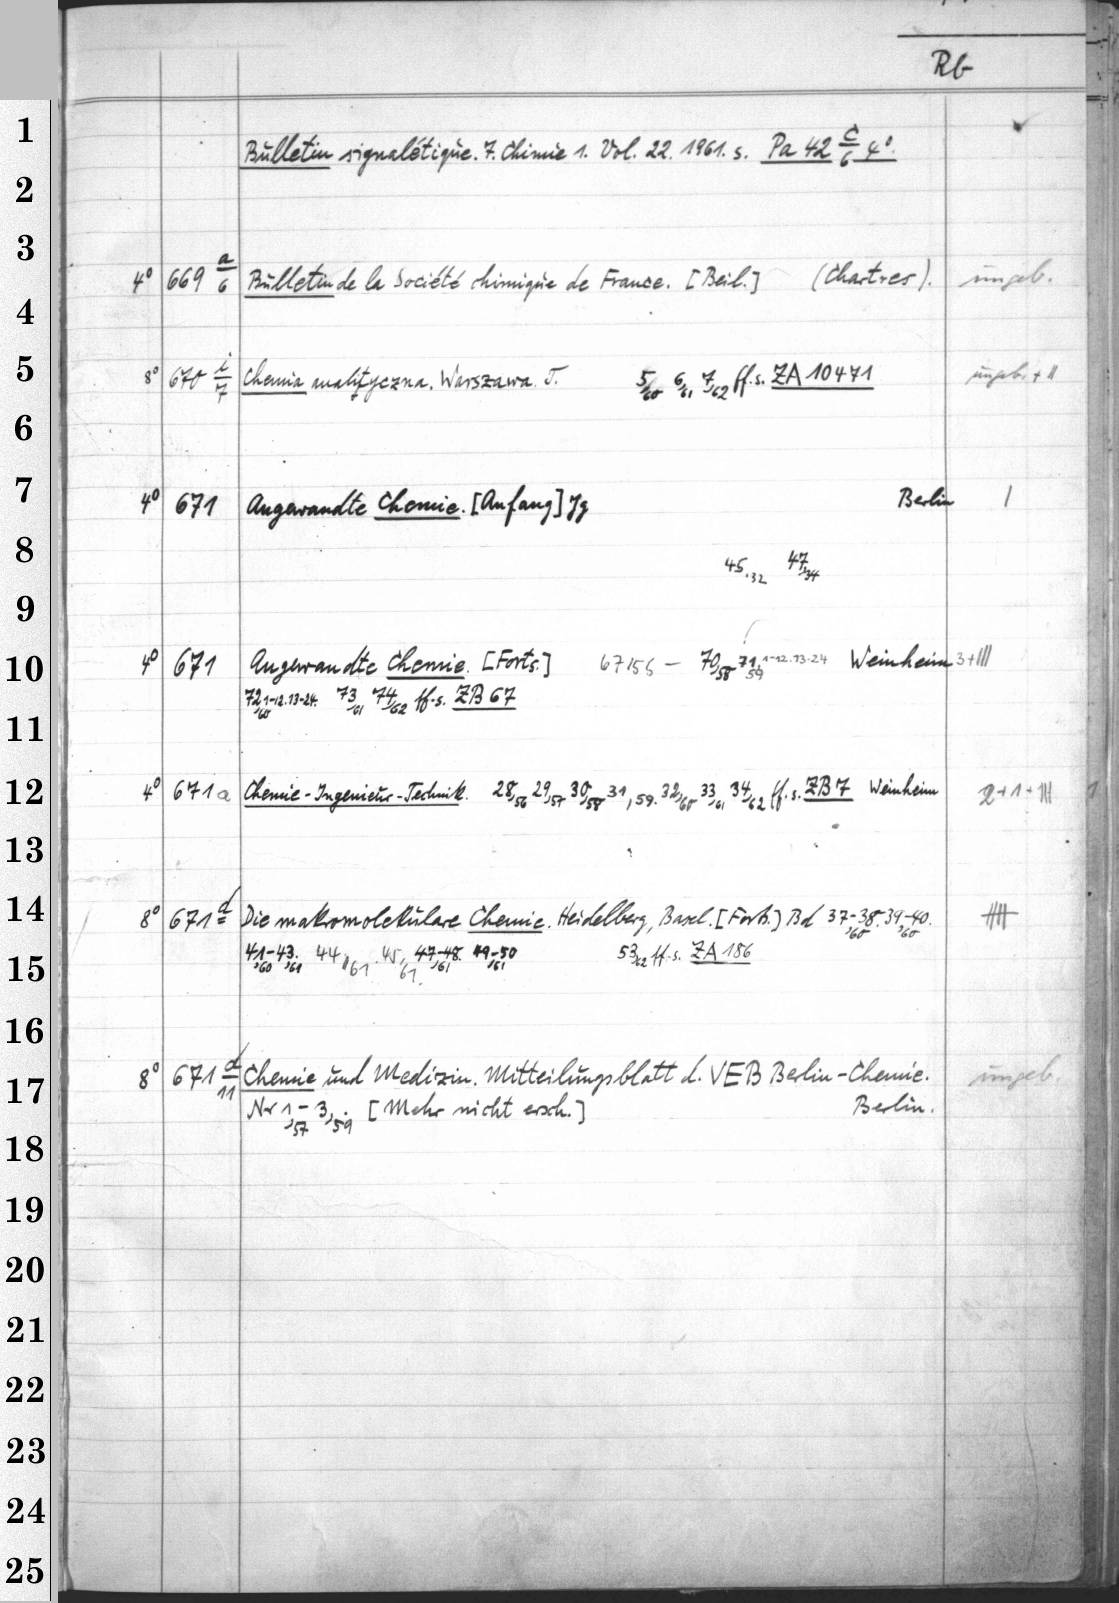 Rb
1
Bulletin signalétique. 7. Chimie 1. Vol. 22. 1961. s. Pa 42 c/6 4°.
2
3
4° 669 a/6 Bulletin de la Société chimique de France. [Beil.] (Chartres). ungeb.
4
5
8° 670 i/7 Chemia analityczna. Warszawa. T. 5,60 6,61 7,62 ff. s. ZA 10471 ungeb. + II
6
7
4° 671 Angewandte Chemie. [Anfang] Jg Berlin |
8
45,32 47,34
9
10
4° 671 Angewandte Chemie. [Forts.] 67,1956 – 70,58 71,59 1-12.13-24 Weinheim 3+III
72,60 1-12.13-24. 73,61 74,62 ff. s. ZB 67
11
12
4° 671a Chemie-Ingenieur-Technik. 28,56 29,57 30,58 31,59. 32,60 33,61 34,62 ff. s. ZB 7 Weinheim 2+1+III
13
14
8° 671 d Die makromolekulare Chemie. Heidelberg, Basel. [Forts.] Bd 37-38,60. 39-40,60.
41-43,60,61 44,61 45,61 47-48,61 49-50,61 53,62 ff. s. ZA 186
15
16
17
8° 671 d/11 Chemie und Medizin. Mitteilungsblatt d. VEB Berlin-Chemie. ungeb.
Nr 1,57 – 3,59. [Mehr nicht ersch.] Berlin.
18
19
20
21
22
23
24
25